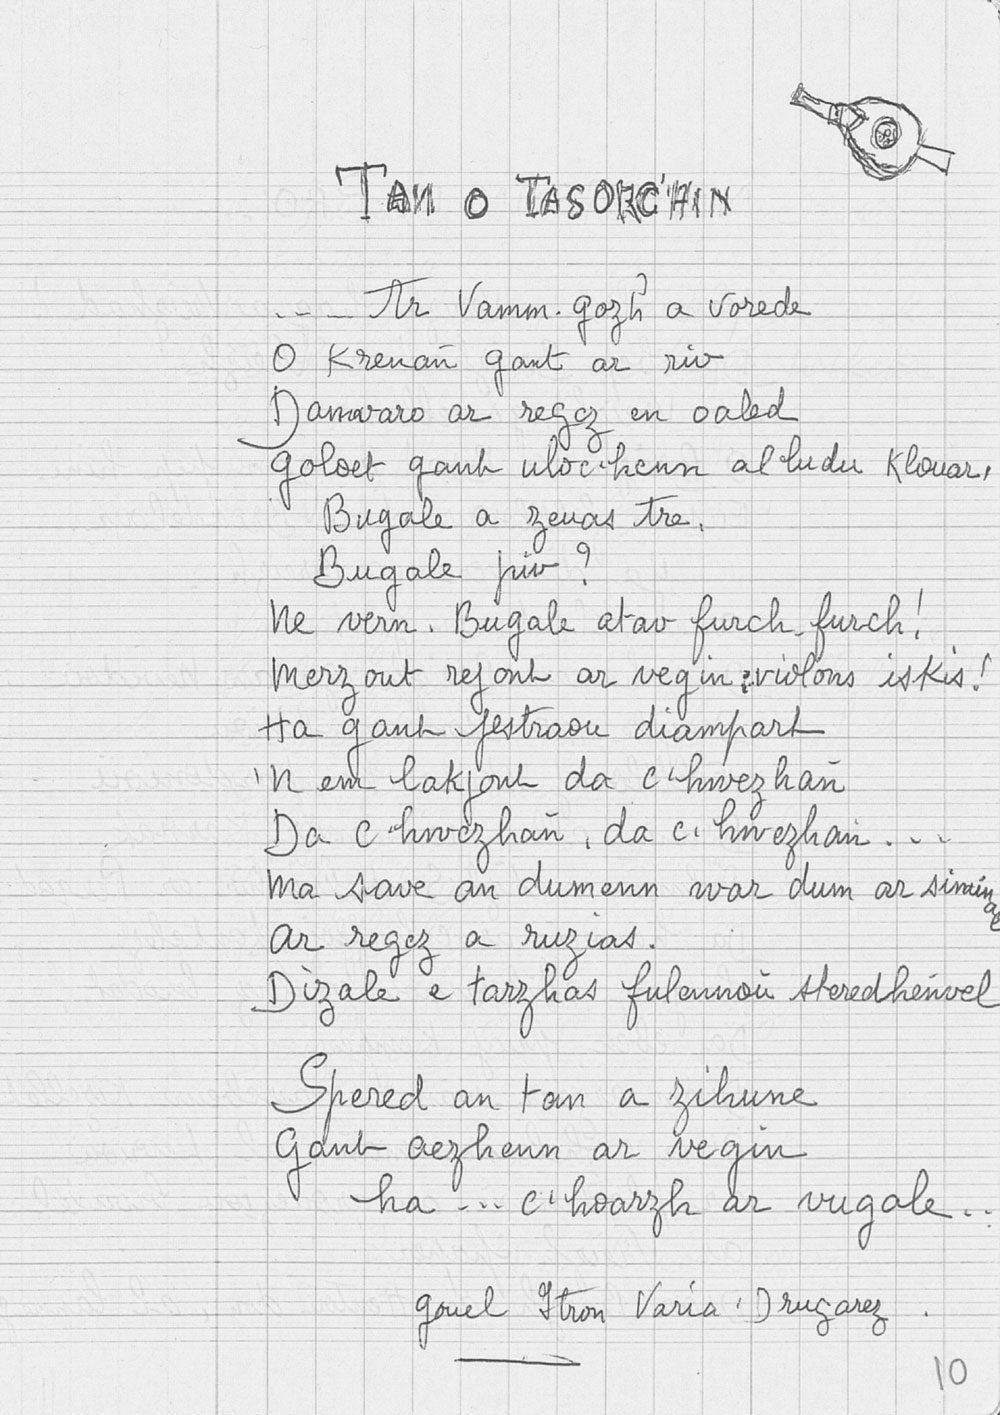 TAN O TASORC'HIN
.... Ar Vamm-gozh a vorede
O Krenañ gant ar riv
Damvaro ar regez en oaled
goloet gant uloc'henn al ludu Klouar,
Bugale a zeuas tre.
Bugale piv?
Ne vern. Bugale atav furch-furch!
Merzout rejont ar vegin : violons iskis!
Ha gant jestraoù diampart
'N em lakjont da c'hwezhañ
Da c'hwezhañ, da c'hwezhañ...
Ma save an dumenn war dum ar siminal
Ar regez a ruzias.
Dizale e tarzhas fulennoù steredheñvel
Spered an tan a zihune
Gant aezhenn ar vegin
ha ... c'hoarzh ar vugale...
gouel Itron Varia Drugarez.
10